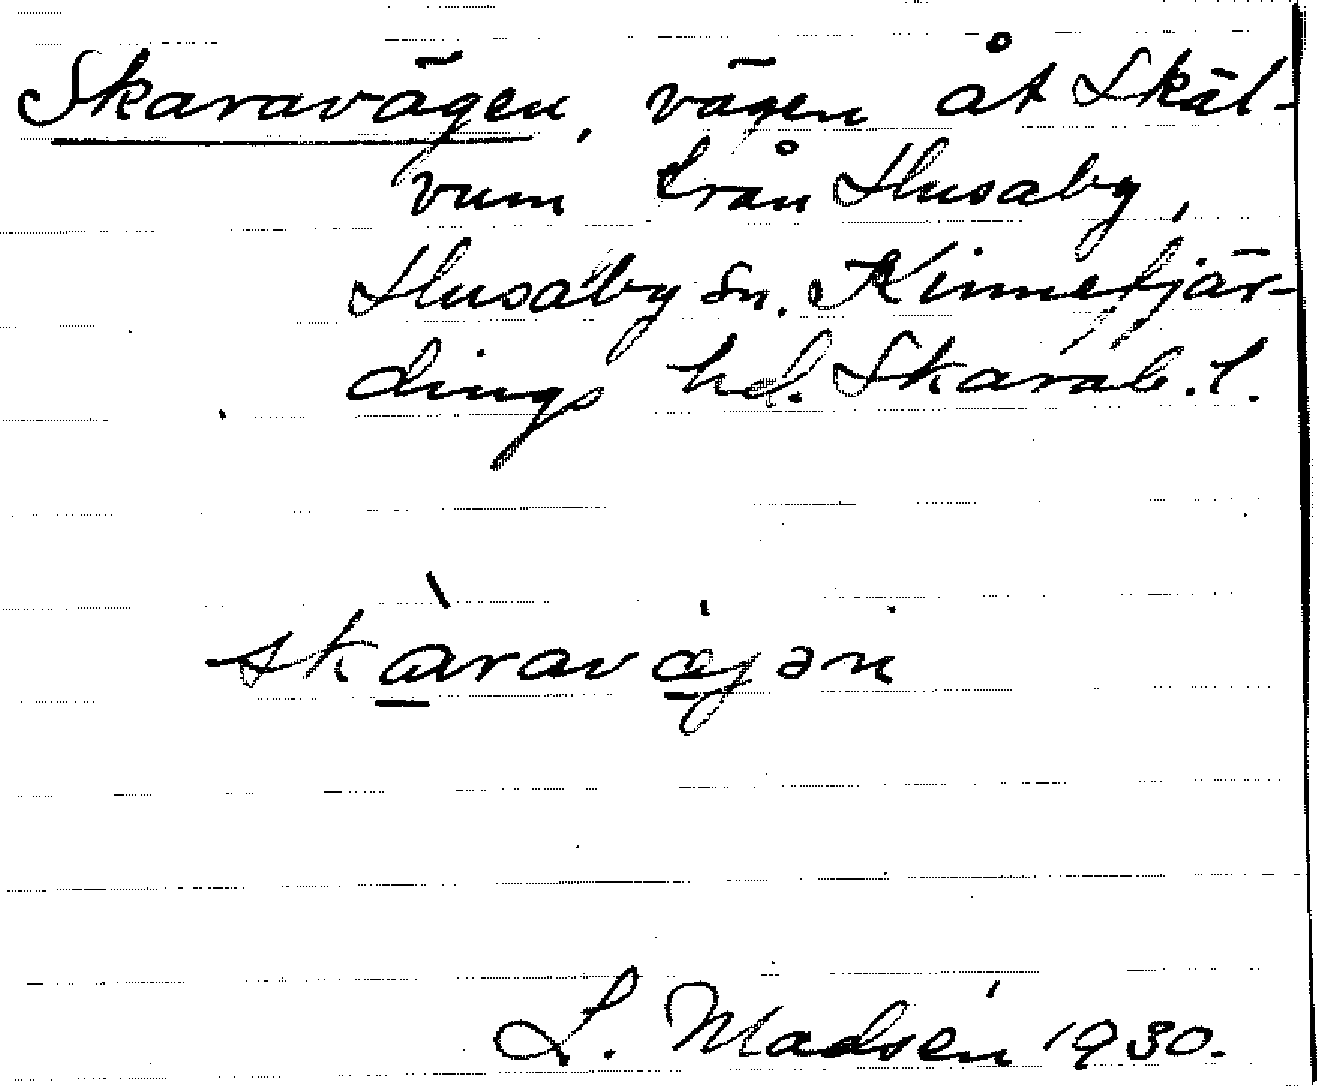 Skaravägen, vägen åt Skäl-
vum från Husaby,
Husaby sn. Kinnefjär-
dings hd. Skarab. l.
skàravæ̍jən
L. Madsén 1930.